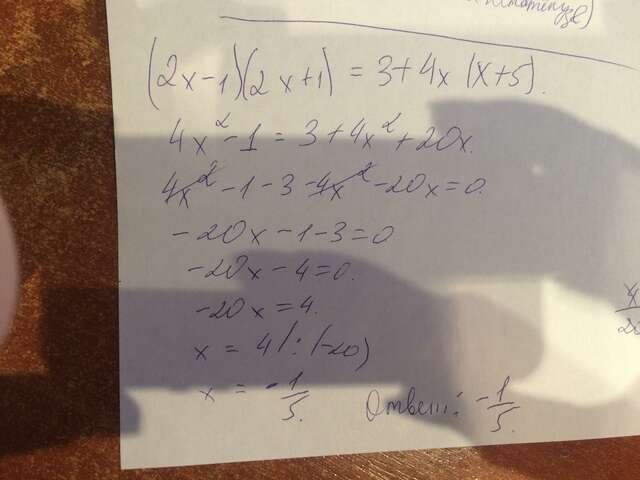 (2x-1)(2x+1) = 3+4x(x+5).
4x²-1 = 3+4x²+20x.
4x²-1-3-4x²-20x=0.
-20x-1-3=0
-20x-4=0.
-20x=4.
x = 4 / : (-20)
x = -1/5.
Ответ: -1/5.